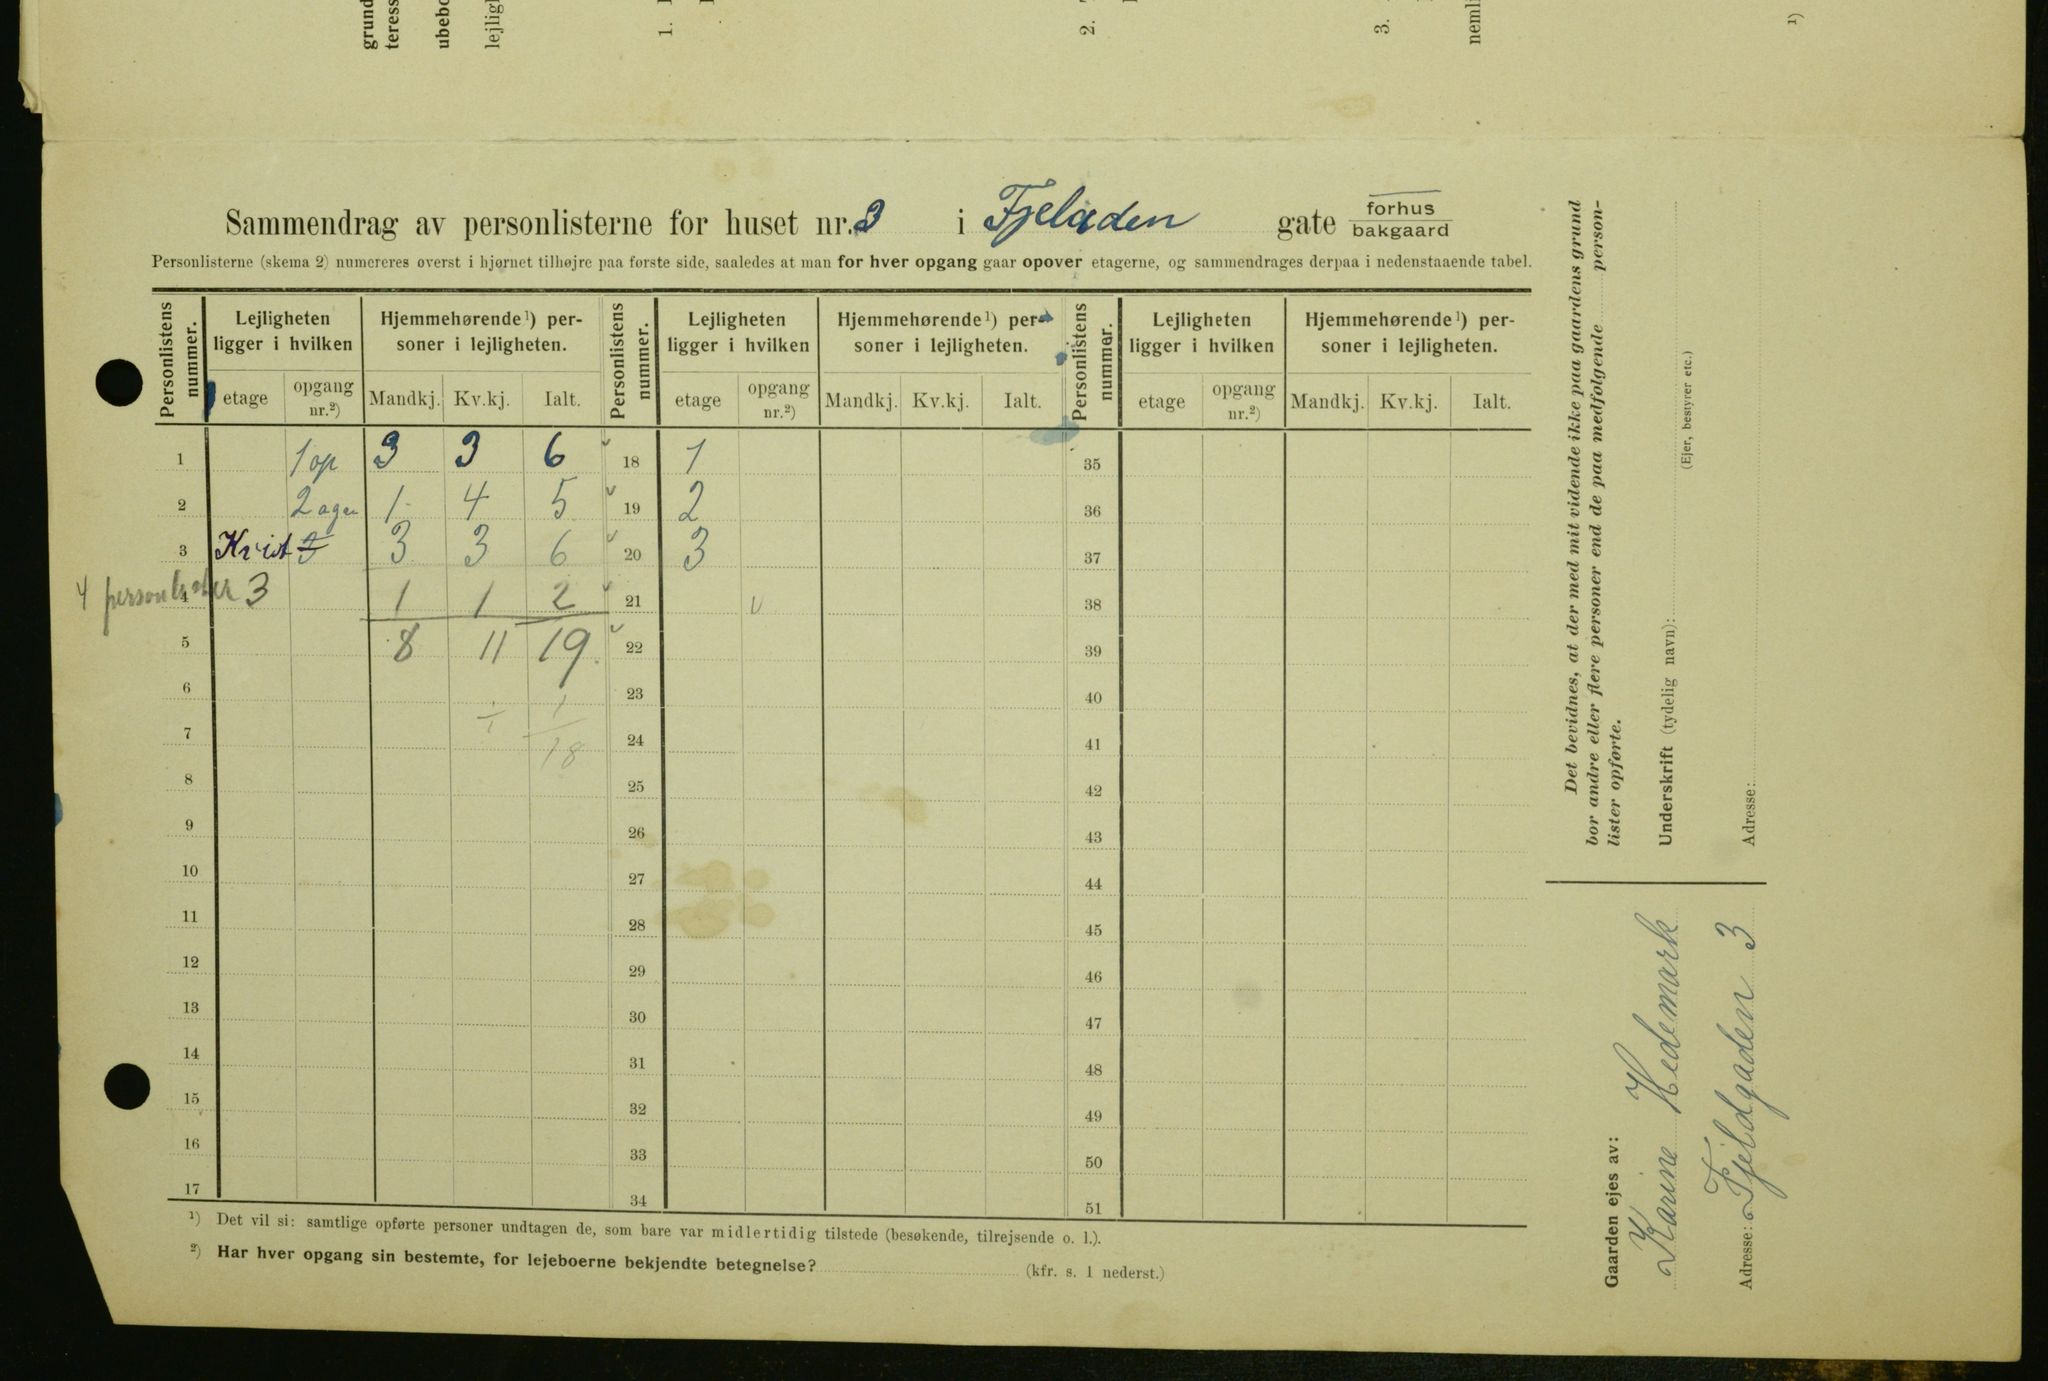 grund
teress
ubebo
lejligh
1.
2.
3.
nemli
1)
Sammendrag av personlisterne for huset nr. 3 i Fjeladen gate forhus
bakgaard
Personlisterne (skema 2) numereres øverst i hjørnet tilhøjre paa første side, saaledes at man for hver opgang gaar opover etagerne, og sammendrages derpaa i nedenstaaende tabel.
Personlistens nummer. Lejligheten ligger i hvilken Hjemmehørende 1) personer i lejligheten. Personlistens nummer. Lejligheten ligger i hvilken Hjemmehørende 1) personer i lejligheten. Personlistens nummer. Lejligheten ligger i hvilken Hjemmehørende 1) personer i lejligheten.
etage opgang nr.2) Mandkj. Kv.kj. Ialt. etage opgang nr.2) Mandkj. Kv.kj. Ialt. etage opgang nr.2) Mandkj. Kv.kj. Ialt.
1 1 op 3 3 6 18 1 35
2 2 1 4 5 19 2 36
3 Kvist 3 3 3 6 20 3 37
4 personlister 4 3 1 1 2 21 38
5 8 11 19. 22 39
6 1 23 40
7 1 18 24 41
8 25 42
9 26 43
10 27 44
11 28 45
12 29 46
13 30 47
14 31 48
15 32 49
16 33 50
17 34 51
1) Det vil si: samtlige opførte personer undtagen de, som bare var midlertidig tilstede (besøkende, tilrejsende o. l.).
2) Har hver opgang sin bestemte, for lejeboerne bekjendte betegnelse? (kfr. s. 1 nederst.)
Det bevidnes, at der med mit vidende ikke paa gaardens grund
bor andre eller flere personer end de paa medfølgende person-
lister opførte.
Underskrift (tydelig navn):
(Ejer, bestyrer etc.)
Adresse:
Gaarden ejes av:
Karine Hedemark
Adresse: Fjeldgaden 3